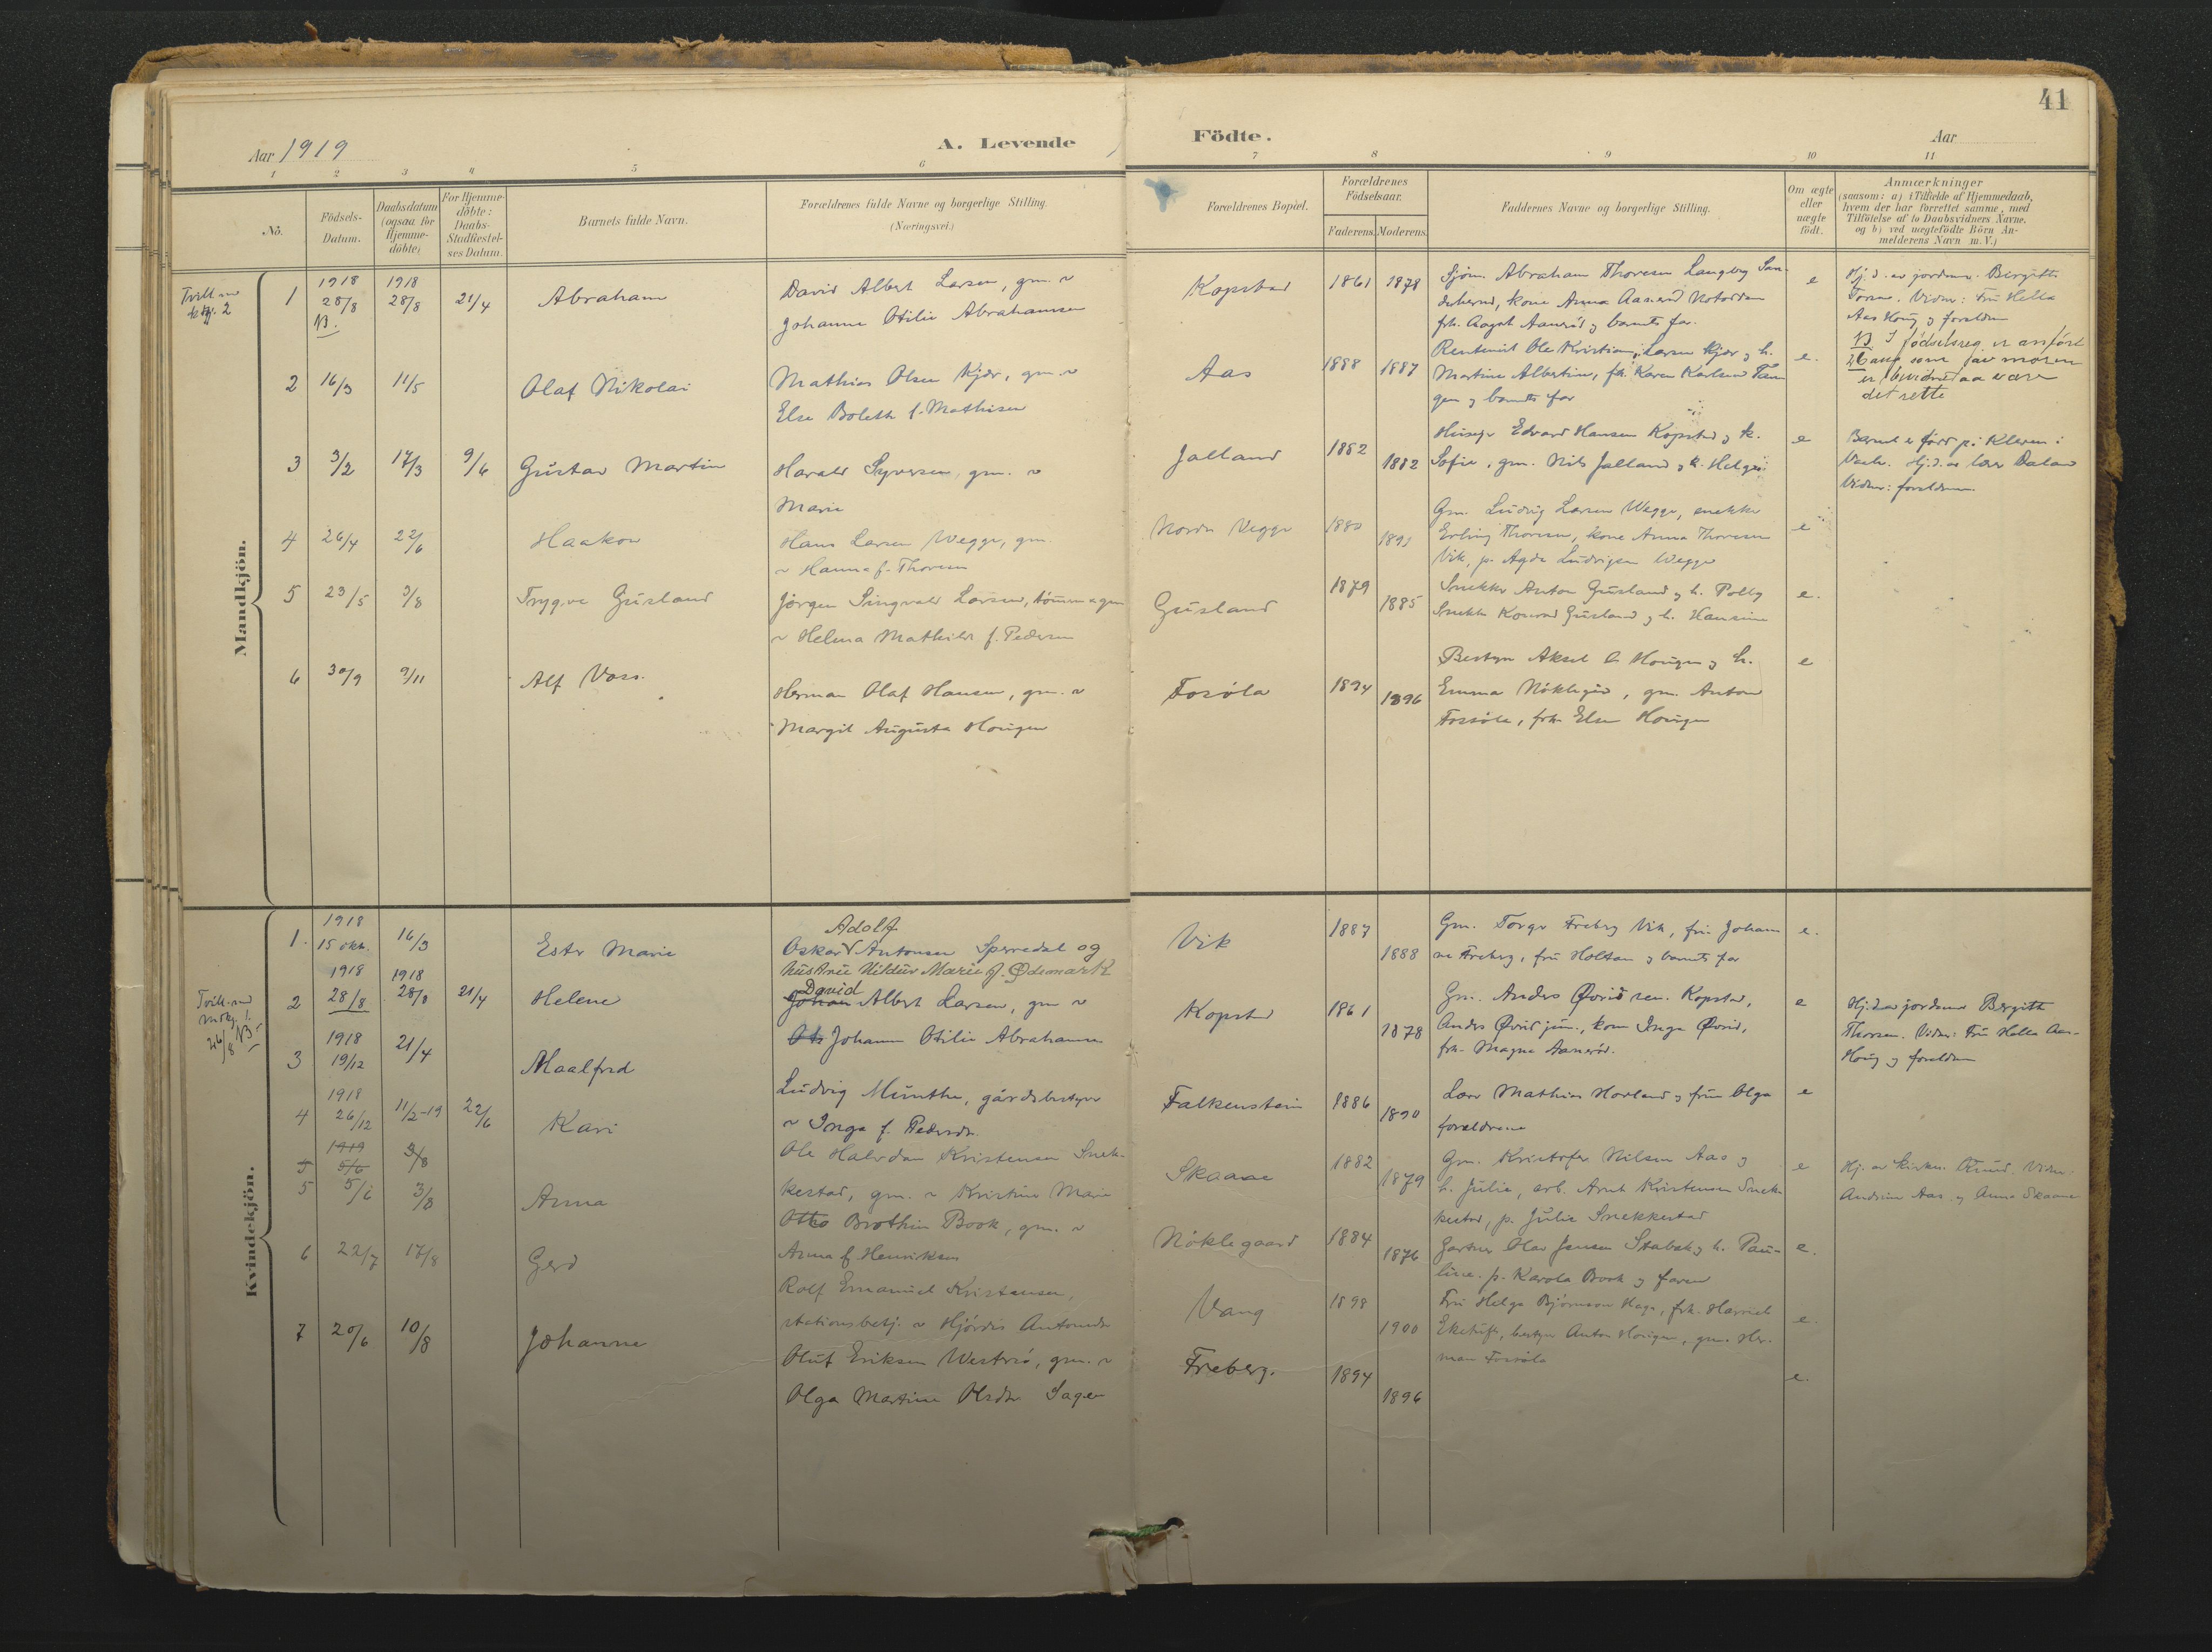 41
Aar 1919
A. Levende
Födte.
Aar
1 2 3 4 5 6 7 8 9 10 11
No.
Födsels-
Datum.
Daabsdatum
(ogsaa for
Hjemme-
döbte)
For Hjemme-
döbte:
Daabs-
Stadfæstel-
ses Datum.
Barnets fulde Navn.
Forældrenes fulde Navne og borgerlige Stilling.
(Næringsvei.)
Forældrenes Bopæl.
Forældrenes
Födselsaar.
Faderens.
Moderens.
Faddernes Navne og borgerlige Stilling.
Om ægte
eller
uægte
födt.
Anmærkninger
(saasom: a) i Tilfælde af Hjemmedaab,
hvem der har forrettet samme, med
Tilföielse af to Daabsvidners Navne,
og b) ved uægtefödte Börn An-
melderens Navn m. V.)
Mandkjön.
1 1918 28/8 NB. 1918 28/8 21/4 Abraham
David Albert Larsen, gm. &
Johanne Otilie Abrahamsen
Kopstad 1861 1878
Sjøm. Abraham Thoresen Langby San-
deherred, kone Anna Aanerød
frk. Aagot Aanerød og barnets far.
e
Hj.d. av jordmor Bergitte
Vidner: Fru Hella
Aas Houg og forældre
NB I fødselsreg. er anført
26 aug. som
det rette
2 16/3 11/5 Olaf Nikolai
Mathias Olsen Kjær, gm. &
Else Boleth f. Mathisen
Aas 1888 1887
Rentenist Ole Kristian Larsen Kjær og h.
Martine Albertine, frk. Karen Karlsen Tan-
gen og barnets far
e.
3 3/2 17/3 9/6 Gustav Martin
Harald Syversen, gm. &
Marie
Jalland 1882 1882
Huseier Edvard Hansen Kopstad og k.
Sofie, gm. Nils Jalland og k. Helga
e
Barnet er født på Kleven i
Vaale. Hj.d. av lærer Daland
Vidner: forældrene.
4 26/4 22/6 Haakon
Hans Larsen Wegge, gm.
& Hanna f. Thoresen
Nordre Vegge 1880 1891
Gm. Ludvig Larsen Wegge, snekker
Erling Thoresen, kone Anna Thoresen
Vik, p. Agda Ludvigsen Wegge
e
5 23/5 3/8 Trygve Gusland
Jørgen Singvald Larsen, tømm. og gm
& Helena Mathilde f. Pedersen
Gusland 1879 1885
Snekker Anton Gusland og h. Polly
Snekker Konrad Gusland og h. Hansine
e.
6 30/9 9/11 Alf Voss.
Herman Olaf Hansen, gm. &
Margit Augusta Hougen
Fossøla 1894 1896
Bestyr Aksel Hougen og h.
Emma Nøklegård, gm. Anton
Fossøla, frk. Else Hougen
e
Kvindekjön.
1. 1918 15 okt. 16/3 Estr Marie
Adolf
Oskar Antonsen Sperredal og
hustrue Hildur Marie f. Ødemark
Vik 1887 1888
Gm. Torger Freberg Vik, fru Johan-
ne Freberg, frk Holtan og barnets far
e.
2 1918 28/8 1918 28/8 21/4 Helene
David
Johan Albert Larsen, gm &
Johanne Otilie Abrahamsen
Kopstad 1861 1878
Gm. Anders Øvrid sen. Kopstad,
Anders Øvrid jun., kone Inga Øvrid,
frk. Magna Aanerød.
e
Hj.d. av jordmor Bergitte
Thorsen. Vidner: Fru Hella Aas-
Houg og forældre
3 1918 19/12 21/4 Maalfrid
Ludvig Munthe, gårdsbestyrer
& Inga f. Pedersdr.
Falkenstein 1886 1890
Lærer Mathias Hovland og frue Olga
forældrene
e
4 1918 26/12 11/2-19 22/6 Kari
Ole Halvdan Kristensen Snek-
kestad, gm. & Kristine Marie
Skaane 1882 1879
Gm. Kristofer Nilsen Aas og
h. Julie, arb. Arnt Kristensen Snek-
kestad, p. Julie Snekkestad
e
Vidner
Andrine Aas og Anna Skaane
5 1919 5/6 3/8
5 5/6 3/8 Anna
Otto Brothin Book, gm. &
Anna f. Henriksen
Nøklegaard 1884 1876
Gartner Olav Jensen Stabek og h. Pau-
line. p. Karola Book og faren
e.
6 22/7 17/8 Gerd
Rolf Emanuel Kristensen,
stationsbetj. & Hjørdis Antonsdr
Vang 1898 1900
Fru Helga Bjørnson Haga, frk. Harriet
Eketuft, bestyr Anton Hougen, gm. Her-
man Fossøla
e.
7 20/6 10/8 Johanne
Oluf Eriksen Westrø, gm. &
Olga Martine Olsdtr Sagen
Freberg. 1894 1896
e.